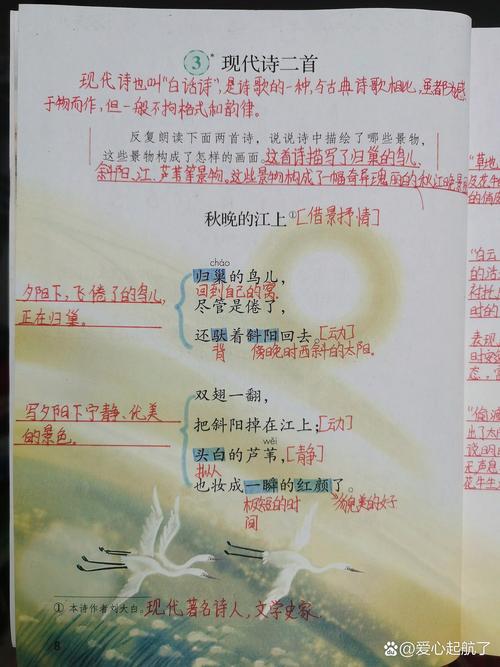 ③ * 现代诗二首
现代诗也叫"白话诗",是诗歌的一种,与古典诗歌相比,虽都为感
于物而作,但一般不拘格式和韵律。
反复朗读下面两首诗,说说诗中描绘了哪些景物,
这些景物构成了怎样的画面。这首诗描写了归巢的鸟儿、
斜阳、江、芦苇等景物。这些景物构成了一幅奇异瑰丽的秋江晚景图
秋晚的江上①[借景抒情]
cháo
归巢的鸟儿,
回到自己的窝。
尽管是倦了,
还驮着斜阳回去。[动]
背 傍晚时西斜的太阳。
夕阳下,飞倦了的鸟儿
正在归巢。
双翅一翻,
把斜阳掉在江上;[动]
wěi
头白的芦苇,[静]
拟人
也妆成一瞬的红颜了。
极短的时
间
写夕阳下宁静、优美
的景色。
① 本诗作者刘大白。现代著名诗人,文学史家
8
"草地
及花牛
的俏皮
"白云
衬托
时的
表现
时
态,
"偷渡
出了太
说明
无声息
花牛生
@爱心起航了